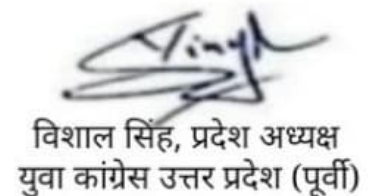 Singh
विशाल सिंह, प्रदेश अध्यक्ष
युवा कांग्रेस उत्तर प्रदेश (पूर्वी)